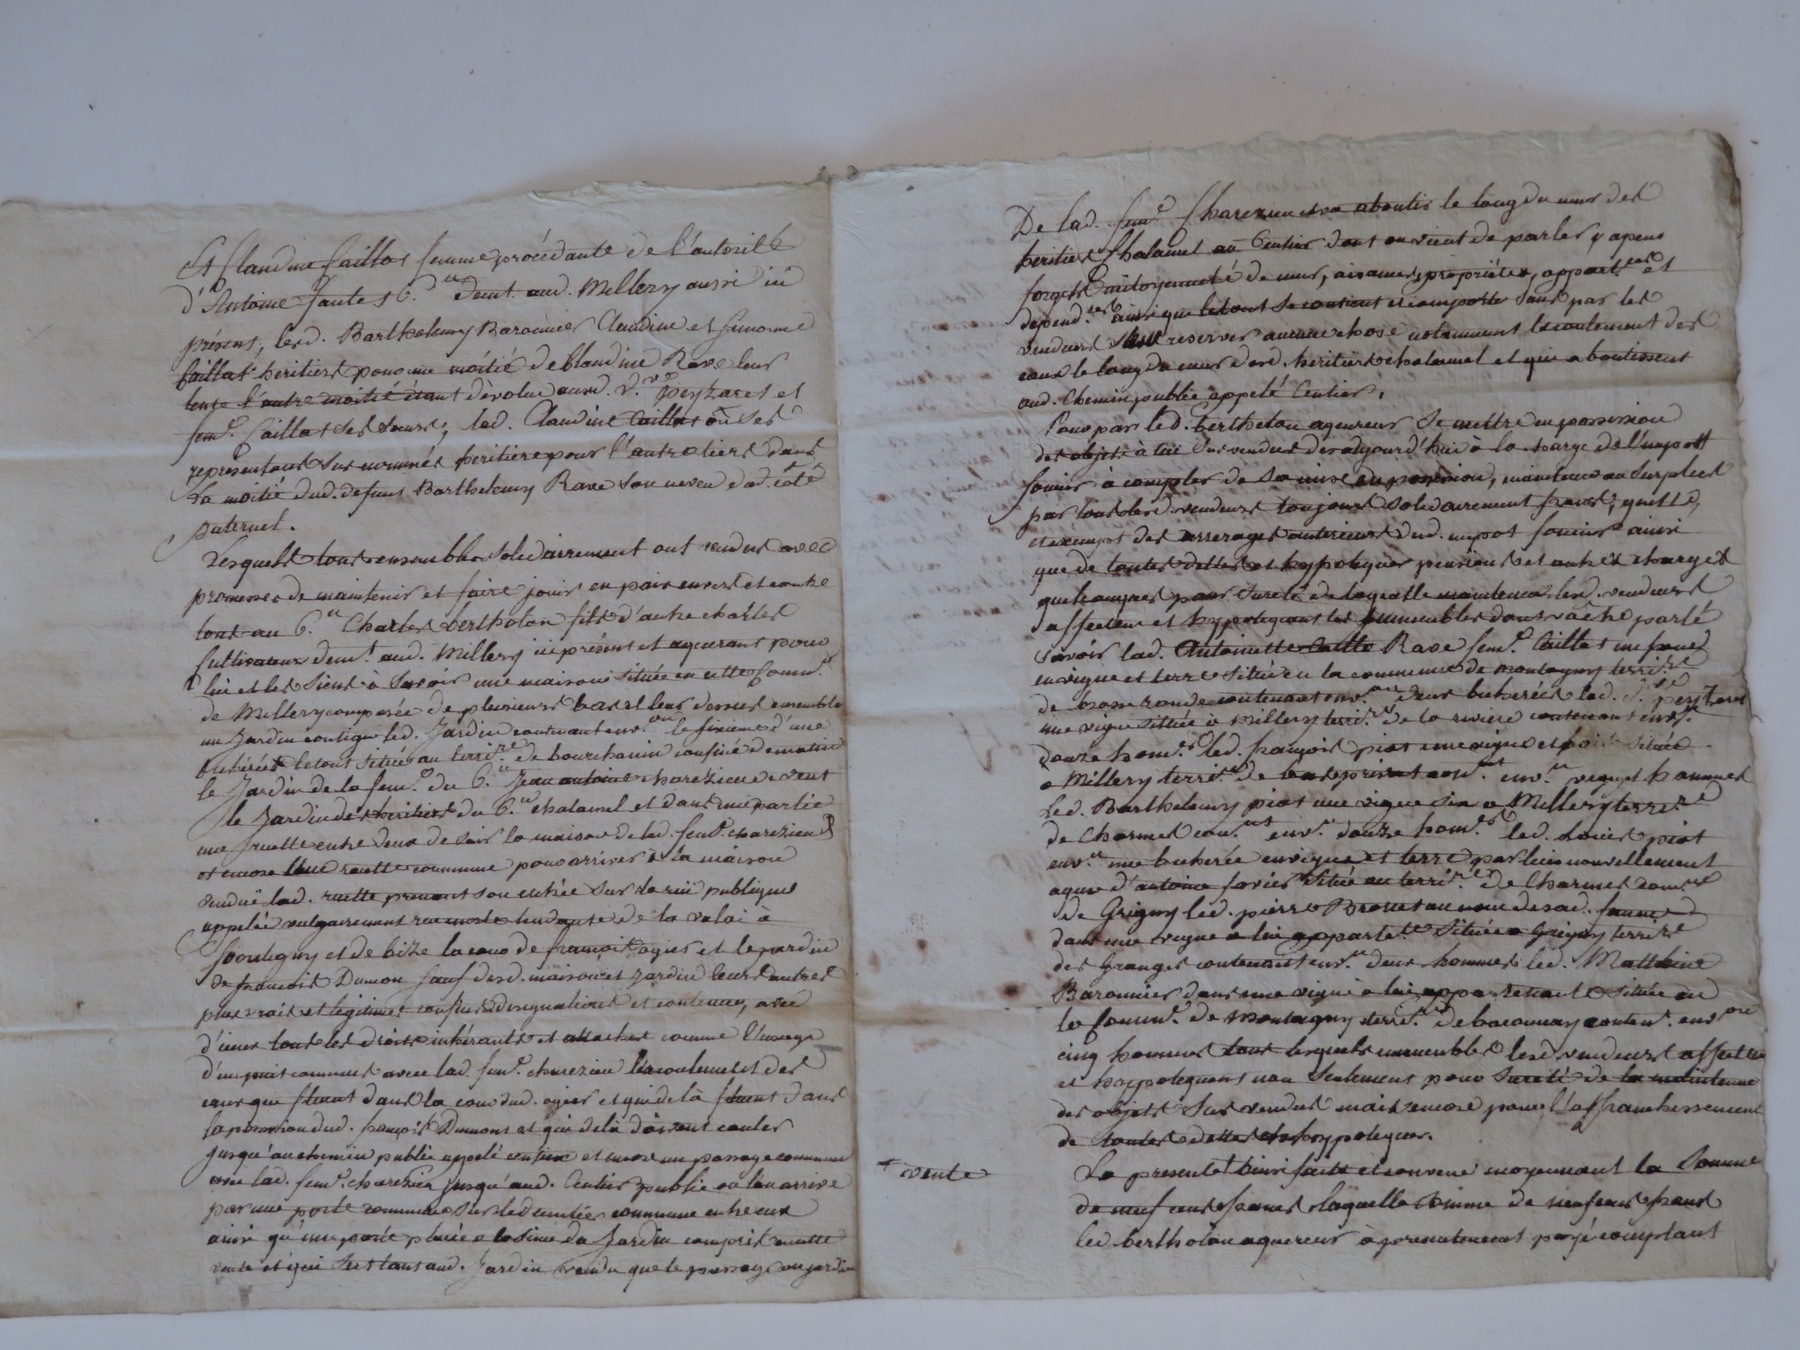 Et Claudine Caillot femme procédante de l'autorité
d'Antoine Jantet C.en demt. aud. Millery aussi ici
présent, lesd. Barthelemy Baronnier Claudine et
Caillot heritiers pour une moitié de Claudine Rave leur
tante l'autre moitié étant dévolue auxd. Peyzaret et
fem.e Caillat ses sœurs, lad. Claudine Caillat où ses
representans sus nommés heritiere pour l'autre tiers dans
La moitié dud. defunt Barthelemy Rave son neveu dud. coté
paternel.
Lesquels tous ensemble solidairement ont vendus avec
promesse de maintenir et faire jouir en paix envers et contre
tous au C.en Charles bertholon fils d'autre charles
Cultivateur demt. aud. Millery ici présent et aquerant pour
lui et les siens à Savoir une maison située en cette Comm.e
de Millery composée de plusieurs bas et leur dessus ensemble
un Jardin contigu led. Jardin contenant env.on le sixieme d'une
bicherée le tout située au terri.re de bourchanin confiné de matin
le Jardin de la fem.e du C.en Jean antoine charezieu de vent
le Jardin des heritiers du C.en chalamel et dans une partie
une ruelle entre deux de soir la maison de lad. fem.e charezieu
et encore une ruette commune pour arriver à la maison
vendue lad. ruette prenant son entrée sur la rue publique
appelée vulgairement rue tendante de la valoi à
Montagny et de bize la cour de françois ogier et le jardin
de francois Dumon sauf desd. maison et jardin leurs autres
plus vrais et legitimes confins designations et contenue, avec
d'iceux tous les droits inhérants et attachés comme l'usage
d'un puit commun avec lad. fem.e charezieu l'écoulement des
eaux que fluent dans la cour dud. ogier et qui de là fluent dans
la possession dud. françois Dumons et qui de là doivent couler
jusqu'au chemin public appelé centier et encore un passage commun
avec lad. fem.e charezieu jusqu'aud. Centier public ou l'on arrive
par une porte commune sur led. centier commune entre eux
ainsi qu'une porte placée a la cime du Jardin compris en cette
vente et qui sert tant aud. Jardin vendu que le passage au jardin
De lad. fem.e Charezieu aboutir le long du mur des
heritiers Chalamel au Centier dont on vient de parler
forgets mitoyenneté de murs, aisances, propriétés, appart.ces et
depend.ces ainsi que le tout se contient et comporte sans par les
vendeurs reserver aucune chose notamment l'ecoulement des
eaux le long du mur desd. heritiers chalamel et qui aboutissent
aud. Chemin public appelé Centier,
Pour par led. bertholon aquereur se mettre en possession
des objets à lui sus vendus dès aujourd'hui à la charge de l'impott
foncier à compter de sa mise en possession, maintenu au surplus
par tous lesd. vendeurs toujours solidairement franc, quitte,
et exempt des arrerages anterieurs dud. impot foncier ainsi
que de toutes dettes et hypoteques pensions et autres charges
quelconques pour sureté de laquelle maintenue lesd. vendeurs
affectent et hypotequent les immeubles dont va être parlé
Savoir lad. Antoinette Rave fem.e Caillat un fonds
en vigne et terre située en la commune de montagny terri.re
de basse ronde contenant env.on deux bicherées lad. v.ve peyzaret
une vigne située à Millery terri.re de la riviere contenant env.on
douze hom.es led. françois piot une vigne et située
a Millery terri.re de env.on vingt hommes
Led. Barthelemy piot une vigne sise a Millery terri.re
de Charmes con.nt env.on douze hom.es led. piot
env.on une bicherée en vigne et terre par lui nouvellement
aquis d'antoine favier située au terri.re de Charmes comm.e
de Grigny led. pierre au nom de sad. femme
dans une vigne a lui appart.te située a Grigny terri.re
des Granges contenant env.on deux hommes led. Mathieu
Baronnier dans une vigne a lui appartenante située en
la Comm.e de Montagny terri.re de content. env.on
cinq hommes tous lesquels immeubles lesd. vendeurs affectent
et hypotequent non seulement pour sureté de la maintenue
des objets sus vendus mais encore pour l'affranchissement
de toutes dettes et hypoteques.
vente
La presente ainsi faite et convenue moyennant la Somme
de neuf cent francs laquelle Somme de neuf cent francs
led. bertholon aquereur à presentement payé comptant